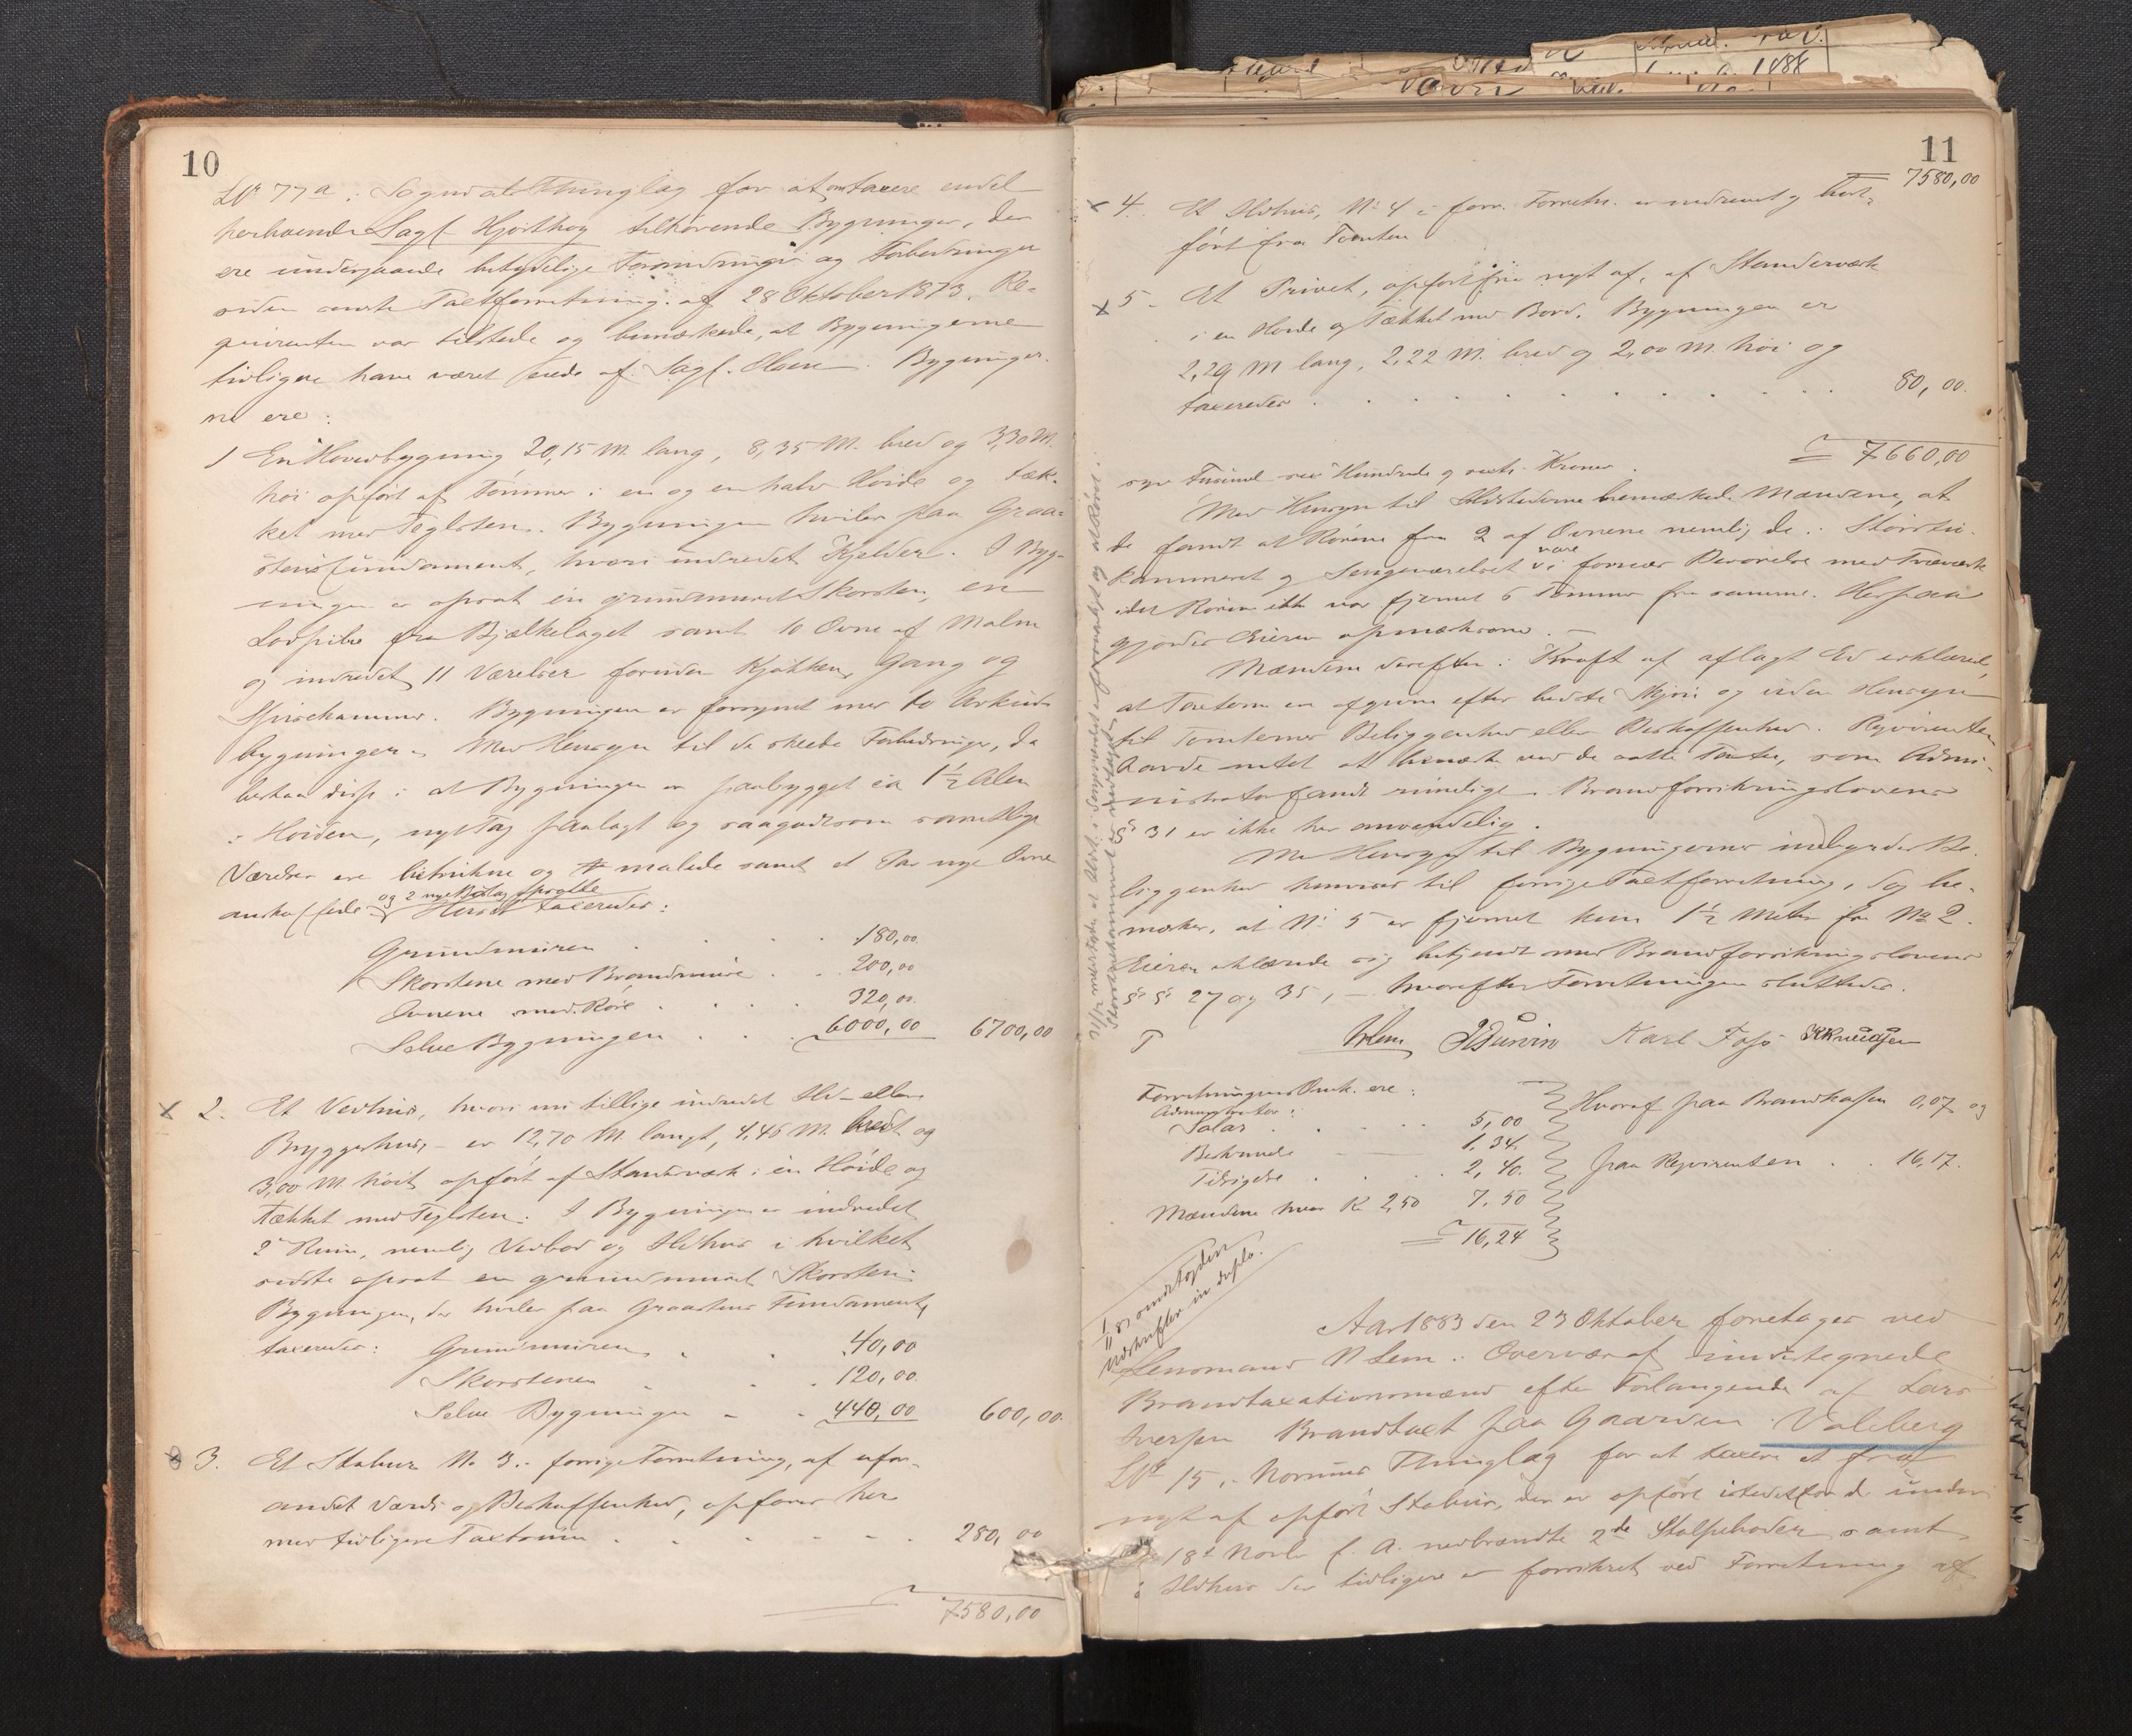 10
LN 77a i Sogndals Thinglag for at omtaxere endel
herhørende Sagf. Hjorthøy tilhørende Bygninger, der
ere undergaaede betydelige Forandringer og Forbedringer
siden sidste Taxtforretning af 28 Oktober 1873. Re-
qvirenten var tilstede og bemærkede, at Bygningerne
tidligere have været eiede af Sagf. Bygninger-
ne ere:
1 En Hovedbygning 20,15 M. lang, 8,35 M. bred og 3,30 M.
høi opført af Tømmer i en og en halv Høide og tæk-
ket med Teglsten. Bygningen hviler paa Graa-
stensfundament, hvori indredet Kjelder. I Byg-
ningen er opsat en grundmuret Skorsten, en
Lodpibe fra Bjælkelaget samt 10 Ovne af Malm
og indredet 11 Værelser foruden Kjøkken, Gang og
Spisekammer. Bygningen er forsynet med to
bygninger. Med Hensyn til de skeede Forbedringer, da
bestaa disse i at Bygningen er paabygget ca 1½ Alen
i Høiden, nyt Tag paalagt og saagodtsom samtlige
Værelser ere betrukne og malede samt et Par nye Ovne
og 2 nye
anskaffede Huset taxeredes:
Grundmuren . . . 180,00
Skorstene med Brandmure . . 200,00
Ovnene med Rør . . . 320,00
Selve Bygningen . . . 6000,00 6700,00
x 2. Et Vedhus, hvori nu tillige indredet Ild- eller
Bryggerhus, er 12,70 M. langt, 4,45 M. bredt og
3,00 M. høit opført af Standværk i en Høide og
tækket med Teglsten. I Bygningen er indredet
2 Rum, nemlig Vedbod og Ildhus i hvilket
sidste opsat en grundmuret Skorsten.
Bygningen, der hviler paa Graastens Fundament,
taxeredes: Grundmuren . . 40,00
Skorstenen . . 120,00
Selve Bygningen - . 440,00 600,00.
x 3. Et Stabur No 3 i forrige Forretning, af ufor-
andret Værdi og Beskaffenhed, opføres her
med tidligere Taxtsum . . . . . 280,00
7580,00
11
7580,00
x 4. Et Ildhus, No 4 i forr. Forretn. er nedrevet og bort-
ført fra Tomten
x 5. Et Privet, opført fra nyt af, af Standerværk
i en Høide og tækket med Bord. Bygningen er
2,29 M lang, 2,22 M. bred og 2,00 M. høi og
taxeredes . . . . . . . . 80,00.
7660,00
syv Tusind sex Hundrede og sexti Kroner.
Med Hensyn til Ildstederne bemærkede Mændene, at
de fandt at Rørene fra 2 af Ovnene nemlig de i
kammeret og Sengeværelset vare i fornær Berørelse med Træværk
idet Rørene ikke var fjernet 6 Tommer fra samme. Herpaa
gjordes Eieren opmærksom. —
Mændene derefter i Kraft af aflagt Ed erklærede,
at Taxterne er afgivne efter bedste Skjøn og uden Hensyn
til Tomternes Beliggenhed eller Beskaffenhed. Reqvirenten
havde intet at bemærke ved de satte Taxter, som Admi-
nistrator fandt rimelige. Brandforsikringslovens
§ 31 er ikke her anvendelig.
Med Hensyn til Bygningernes indbyrdes Be-
liggenhed henvises til forrige Taxtforretning, dog be-
mærkes, at No 5 er fjernet kun 1½ Meter fra No 2.
Eieren erklærede sig bekjendt med Brandforsikringslovens
§§ 27 og 35, — hvorefter Forretningen sluttedes.
Karl Fosse KKnudsen
Forretningens Omk. ere:
Administrator:
Salær . . . . 5,00
1,34.
. . . 2,40.
Mændene hver Kr 2,50 7,50
16,24
Hvoraf paa Brandkassen 0,07 og
paa Reqvirenten . . 16,17.
udskrifter in duplo.
Aar 1883 den 23 Oktober foretages ved
Lensmand N Lem i Overvær af undertegnede
Brandtaxationsmænd efter Forlangende af Lars
Iversen Brandtaxt paa Gaarden Valeberg
LN 15, i Norums Thinglag for at taxere et fra
nyt af opført Stabur, der er opført istedetfor de under
18de Novbr f. A. nedbrændte 2de Stolpeboder samt
Ildhus der tidligere er forsikret ved Forretning af